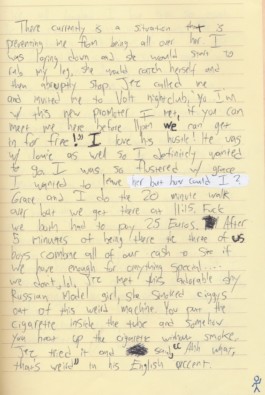 There currently is a situation that is
preventing me from being all over her I
was laying down and she would start to
rub my leg, she would catch herself and
then abruptly stop. Jez called me
and invited me to Volt nightclub, "Yo I'm
w/ this new promoter I met, if you can
meet me here before 11pm we can get
in for free!" I love his hustle! He was
w/ Louie as well so I definitely wanted
to go. I was so flustered w/ Grace
I wanted to leave her but how could I?
Grace and I do the 20 minute walk
over but we get there at 11:15. Fuck
we both had to pay 25 Euros. After
5 minutes of being there the three of us
boys combine all of our cash to see if
we have enough for anything special...
we don't, lol. Jez met this adorable
Russian Model girl, she smoked ciggys
out of this weird machine. You put the
cigarette inside the tube and somehow
you heat up the cigarette without smoke.
Jez tried it and said, "Ahh what,
that's weird" in his English accent.